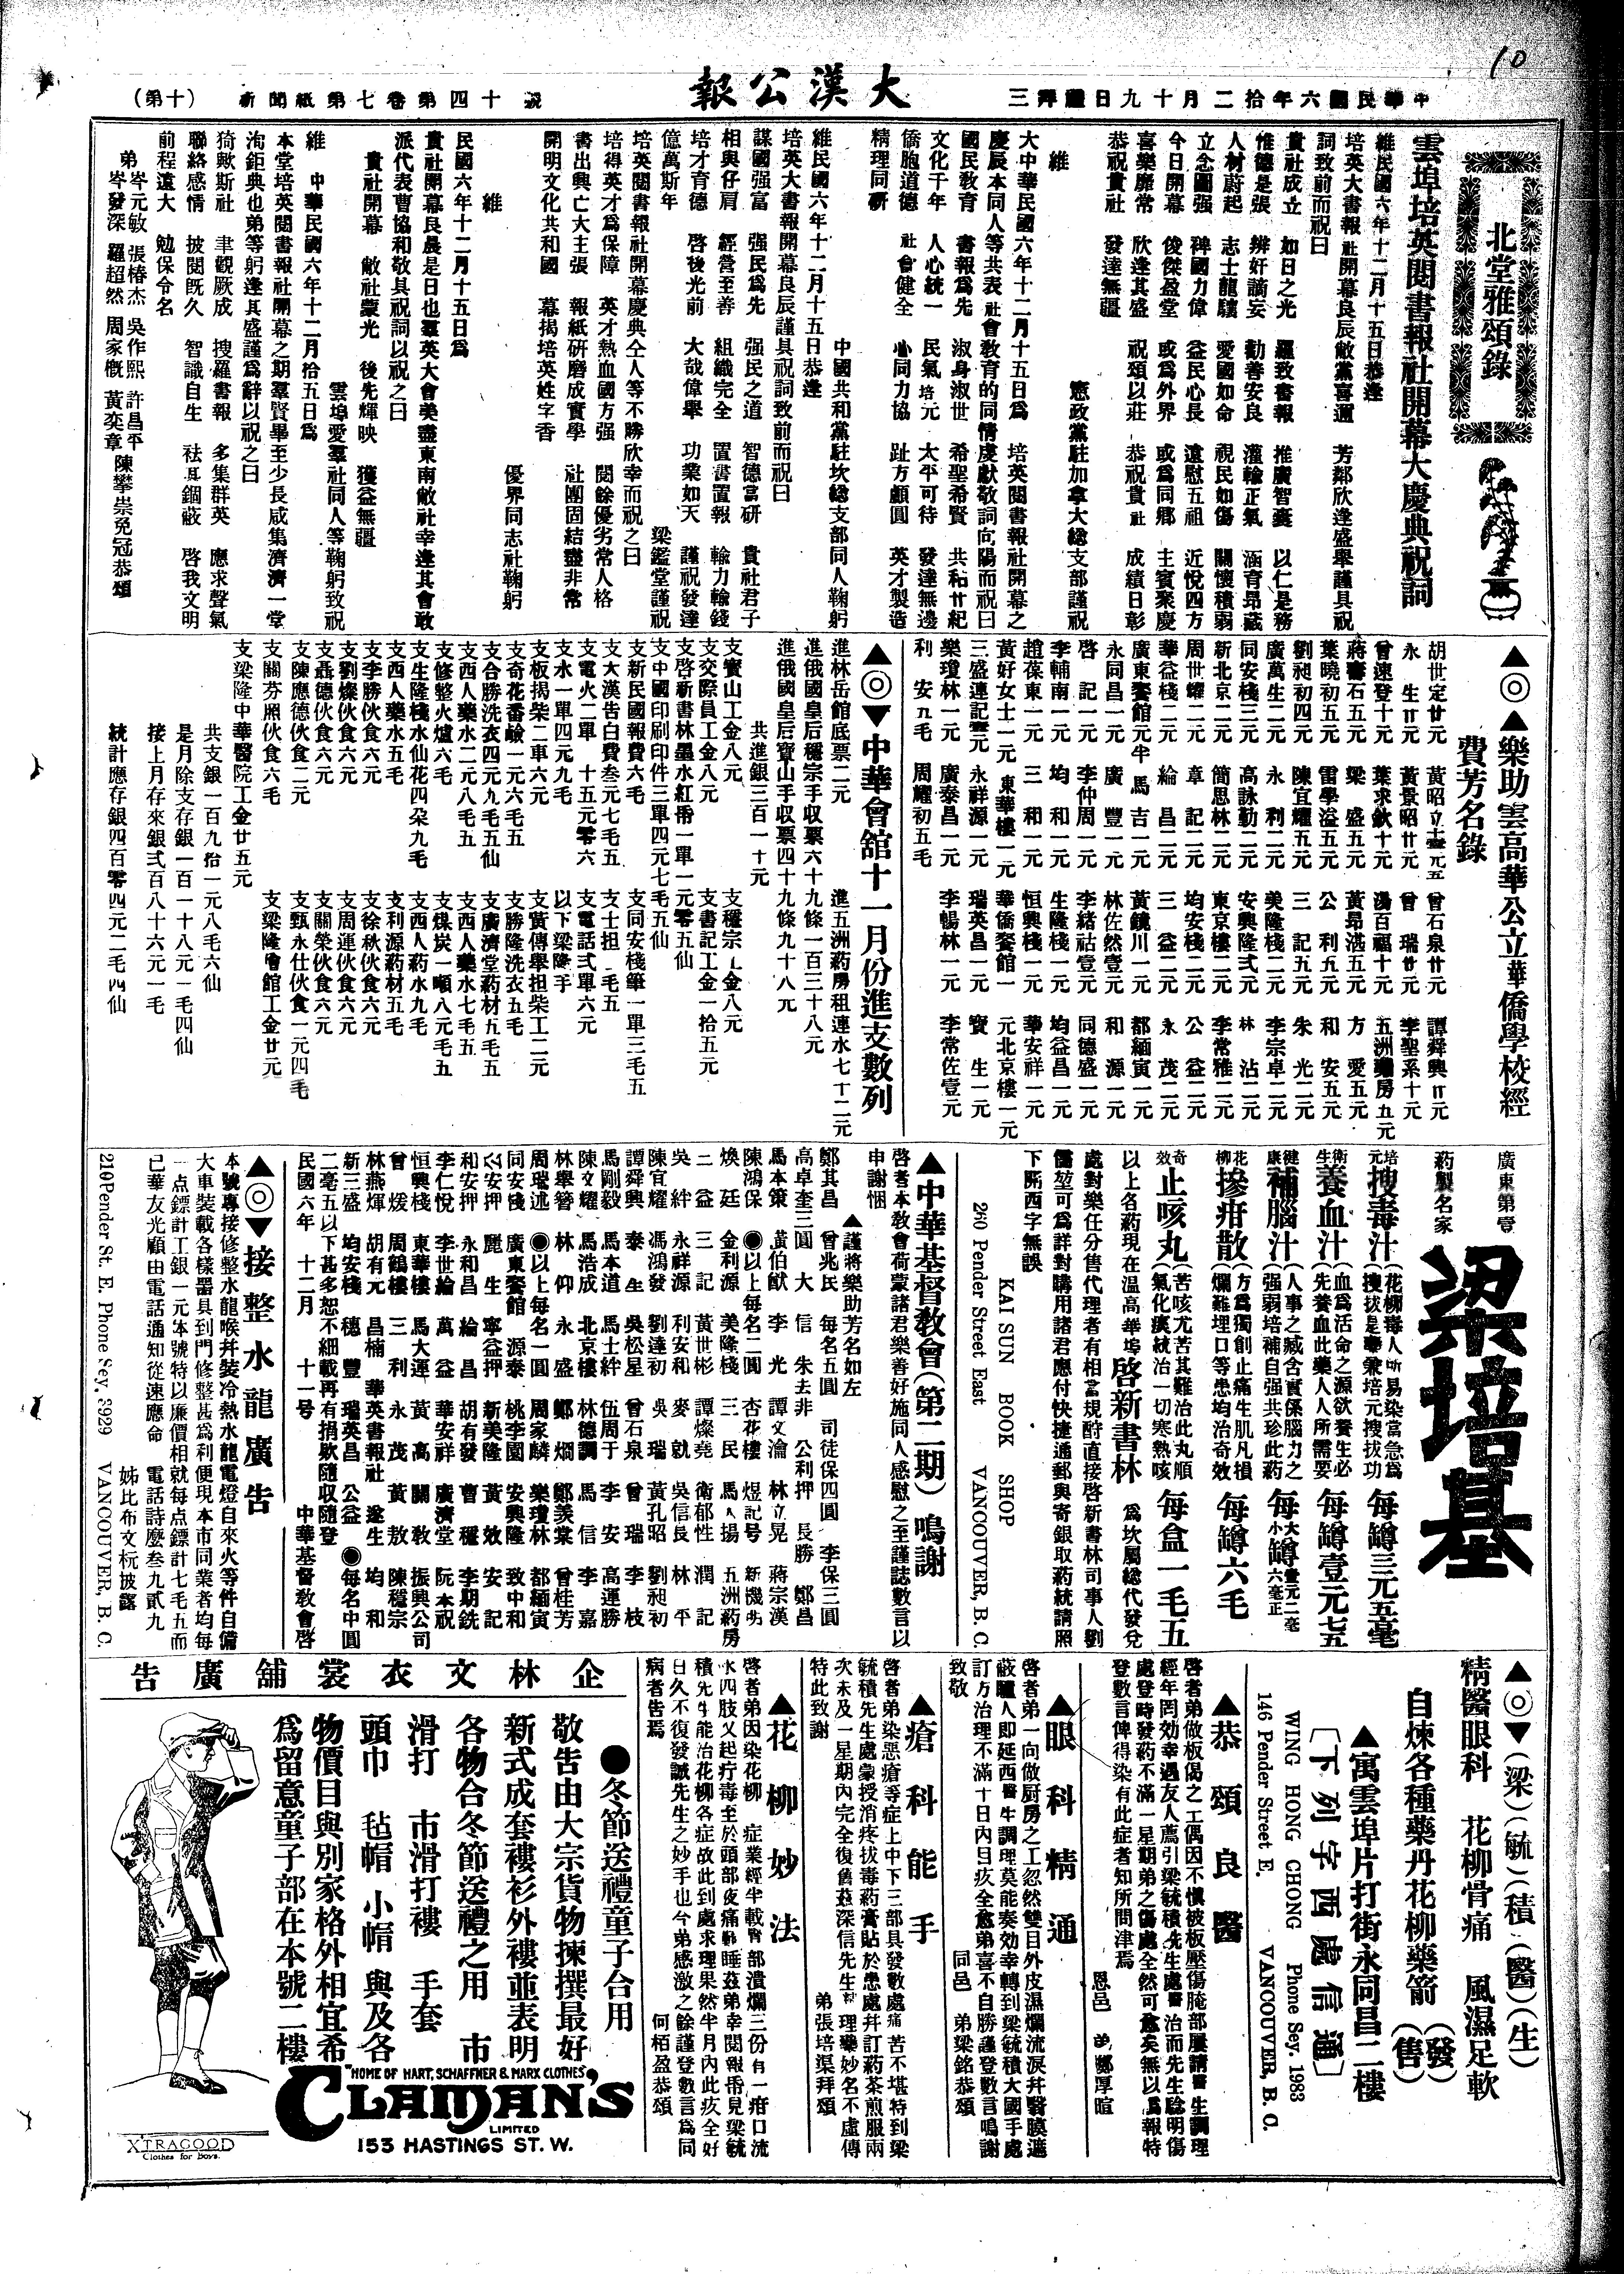 10
中華民國六年拾二月十九日禮拜三
大漢公報
新聞紙第七卷第四十號
(第十)
北堂雅頌錄
雲埠培英閱書報社開幕大慶典祝詞
維民國六年十二月十五日恭逢
培英大書報社開幕良辰敝黨喜邇 芳鄰欣逢盛舉謹具祝
詞致前而祝曰
貴社成立 如日之光 羅致書報 推廣智囊 以仁是務
惟德是張 辨奸謫妄 勸善安良 瀍輸正氣 涵育昂藏
人材蔚起 志士龍驤 愛國如命 視民如傷 關懷積弱
立念圖强 裨國力偉 益民心長 遠慰五祖 近悅四方
今日開幕 俊傑盈堂 或為外界 或為同鄉 主賓聚慶
喜樂靡常 欣逢其盛 祝頌以莊 恭祝貴社 成績日彰
恭祝貴社 發達無疆
憲政黨駐加拿大總支部謹祝
維
大中華民國六年十二月十五日為 培英閱書報社開幕之
慶辰本同人等共表社會教育的同情虔獻敬詞向陽而祝曰
國民教育 書報為先 淑身淑世 希聖希賢 共和廿紀
文化千年 人心統一 民氣培元 太平可待 發達無邊
僑胞道德 社會健全 心同力協 趾方顱圓 英才製造
精理同研
中國共和黨駐坎總支部同人鞠躬
維民國六年十二月十五日恭逢
培英大書報開幕良辰謹具祝詞致前而祝曰
謀國强富 强民為先 强民之道 智德當研 貴社君子
相與仔肩 經營至善 組織完全 置書置報 輸力輸錢
培才育德 啓後光前 大哉偉舉 功業如天 謹祝發達
億萬斯年
梁鑑堂謹祝
培英閱書報社開幕慶典仝人等不勝欣幸而祝之曰
培得英才為保障 英才熱血國方强 閱餘優劣常人格
書出興亡大主張 報紙研磨成實學 社團固結盡非常
開明文化共和國 幕揭培英姓字香
優界同志社鞠躬
維
民國六年十二月十五日為
貴社開幕良晨是日也羣英大會美盡東南敝社幸逢其會敢
派代表曹協和敬具祝詞以祝之曰
貴社開幕 敝社蒙光 後先輝映 獲益無疆
雲埠愛羣社同人等鞠躬致祝
維 中華民國六年十二月拾五日為
本堂培英閱書報社開幕之期羣賢畢至少長咸集濟濟一堂
洵鉅典也弟等躬逢其盛謹為辭以祝之曰
猗歟斯社 聿觀厥成 搜羅書報 多集群英 應求聲氣
聯絡感情 披閱既久 智識自生 祛其錮蔽 啓我文明
前程遠大 勉保令名
弟岑元敏 張椿杰 吳作熙 許昌平 陳攀崇免冠恭頌
岑發深 羅超然 周家慨 黃奕章
▲◎▲樂助雲高華公立華僑學校經
費芳名錄
胡世定廿元 黃昭立壹元五 曾石泉廿元 譚舜興廿元
永生廿元 黃景昭廿元 曾瑞廿元 李聖系十元
曾速登十元 葉求欽十元 湯百福十元 五洲藥房五元
蔣壽石五元 梁盛五元 黃昂湛五元 方愛五元
葉曉初五元 雷學溢五元 公利五元 和安五元
劉昶初四元 陳宜耀五元 三記五元 朱光二元
廣萬生二元 永利二元 美隆棧二元 李宗卓二元
同安棧三元 高詠勤二元 安興隆弍元 林沾二元
新北京二元 簡思林二元 東京樓二元 李常雅二元
周世耀二元 章記二元 均安棧二元 公益二元
華益棧二元 綸昌二元 三益二元 永茂二元
廣東餐館元半 馬吉二元 黃鏡川一元 都緬寅一元
永同昌一元 廣豐一元 林佐然壹元 和源一元
啓記一元 李仲周一元 李緒祜壹元 同德盛一元
李輔南一元 均和一元 生隆棧一元 均益昌一元
趙葆東一元 三和一元 恒興棧一元 華安祥一元
黃好女士一元 東華樓一元 華僑餐館一元 北京樓一元
三盛連記壹元 永祥源一元 瑞英昌一元 寶生一元
樂瓊林一元 廣泰昌一元 李暢林一元 李常佐壹元
利安五毛 周耀初五毛
▲◎▼中華會舘十一月份進支數列
進林岳館底票二元 進五洲葯房租連水七十二元
進俄國皇后穩宗手收票六十九條一百三十八元
進俄國皇后寶山手收票四十九條九十八元
共進銀三百一十元
支寶山工金八元 支穩宗工金八元
支交際員工金八元 支書記工金一拾五元
支啓新書林墨水紅帋一單一元零五仙
支中國印刷印件三單四元七毛五仙
支新民國報費六毛 支同安棧箒一單三毛五
支大漢告白費叁元七毛五 支士担一毛五
支電火二單十五元零六 支電話弍單六元
支水一單四元九毛 以下梁隆手
支板揭柴二車六元 支黃傳舉担柴工二元
支奇花番鹼一元六毛五 支勝隆洗衣五毛
支合勝洗衣四元九毛五仙 支廣濟堂葯材五毛五
支西人藥水二元八毛五 支西人藥水七毛五
支修整火爐六毛 支煤炭一噸八元五
支生隆棧水仙花四朶九毛 支西人葯水九毛
支西人藥水五毛 支利源葯材五毛
支李勝伙食六元 支徐秋伙食六元
支劉燦伙食六元 支周運伙食六元
支聶德伙食六元 支關榮伙食六元
支陳應德伙食二元 支甄永仕伙食一元四毛
支關芬厠伙食六毛 支梁隆會館工金廿元
支梁隆中華醫院工金廿五元
共支銀一百九拾一元八毛六仙
是月除支存銀一百一十八元一毛四仙
接上月存來銀弍百八十六元一毛
統計應存銀四百零四元二毛四仙
廣東第壹
葯製名家
梁培基
培元搜毒汁(花柳毒人所易染當急為搜拔是華兼培元搜拔功 每罇三元五毫
衛生養血汁(血為活命之源欲養生必先養血此藥人人所需要 每罇壹元七五
健康補腦汁(人事之臧含實係腦力之强弱培補自强共珍此葯 大罇壹元二毫 小罇六毫正
花柳摻疳散(方為獨創止痛生肌凡損爛難埋口等患均治奇效 每罇六毛
奇效止咳丸(苦咳尤苦其難治此丸順氣化痰統治一切寒熱咳 每盒一毛五
以上名葯現在温高華埠啓新書林 為坎屬總代發兌
處對樂任分售代理者有相當規酹直接啓新書林司事人劉
儒堃可為詳對購用諸君應付快捷通郵與寄銀取葯統請照
下開西字無誤
KAI SUN BOOK SHOP
260 Pender Street East VANCOUVER, B. C.
▲中華基督教會(第二期)鳴謝
啓者本教會荷蒙諸君樂善好施同人感慰之至謹誌數言以
申謝悃
▲謹將樂助芳名如左
鄭其昌 曾兆民 每名五圓 司徒保四圓 李保三圓
高卓奎三圓 大信 朱去非 公利押 長勝 鄭昌
馬本策 黃伯猷 李光 譚文淪 林立晃 蔣宗漢
陳鴻保 ◉以上每名二圓 杏花樓 煜記号 新機房
煥廷 金利源 美隆棧 三民 馬人揚 五洲葯房
二益 三記 黃世彬 譚燦堯 衛郁性 潤記
吳絆 永祥源 利安和 麥就 吳信長 林平
陳宜耀 馮鴻發 劉達初 吳瑞 黃孔昭 劉昶初
譚舜興 泰生 吳松星 曾石泉 曾瑞 李枝
馬剛毅 馬本道 馬士絆 伍周于 李安 高運勝
陳文耀 馬浩成 北京樓 林德調 馬信 李嘉
林舉簪 林仰 永盛 鄭燗 鄭羨棠 曾桂芳
周瑞述 ◉以上每名一圓 周家麟 樂瓊林 都緬寅
同安棧 廣東餐館 源泰 桃李園 安興隆 致中和
公安押 麗生 寧益押 新美隆 黃效 安記
和安押 永和昌 綸昌 胡有發 曹穩 李期銑
李仁悅 李世綸 萬益 華安祥 廣濟堂 阮本祝
恒興棧 東華樓 馬大運 黃高 關教 振興公司
曾煖 周鶴樓 三利 永茂 黃敖 陳穩宗
林燕煇 胡有元 昌楠 華英書報社 遂生 均和
新三盛 均安棧 穗豐 瑞英昌 公益 ◉每名中圓
二毫五以下甚多恕不細載再有捐欵隨收隨登
民國六年 十二月 十一号 中華基督敎會啓
▲◎▼接整水龍廣告
本號專接修整水龍喉并裝冷熱水龍電燈自來火等件自備
大車裝載各樣器具到門修整甚為利便現本市同業者均每
一点鏢計工銀一元本號特以廉價相就每点鏢計七毛五而
已華友光顧由電話通知從速應命 電話詩麼叁九貳九
姊比布文杬披露
210 Pender St. E. Phone Sey. 3929 VANCOUVER, B. C.
▲◎▼(梁)(毓)(積)(醫)(生)
精醫眼科 花柳骨痛 風濕足軟
自煉各種藥丹花柳藥箭(發)(售)
▲寓雲埠片打街永同昌二樓
〔下列字西處信通〕
WING HONG CHONG Phone Sey. 1983
146 Pender Street E. VANCOUVER, B. C.
▲恭頌良醫
啓者弟做板偈之工偶因不慎被板壓傷腌部屢請醫生調理
經年罔効幸遇友人薦引梁毓積先生處醫治而先生騐明傷
處登時發葯不滿一星期弟之傷處全然可愈矣無以為報特
登數言俾得染有此症者知所問津焉
恩邑 弟鄭厚暄
▲眼科精通
啓者弟一向做厨房之工忽然雙目外皮濕爛流淚幷醫膜遮
蔽瞳人即延西醫生調理莫能奏効幸轉到梁毓積大國手處
訂方治理不滿十日內目疚全愈弟喜不自勝謹登數言鳴謝
致敬
同邑 弟梁銘恭頌
▲瘡科能手
啓者弟染惡瘡等症上中下三部具發數處痛苦不堪特到梁
毓積先生處蒙授消疼拔毒葯膏貼於患處并訂葯茶煎服兩
次未及一星期內完全復舊茲深信先生料理藥妙名不虛傳
特此致謝
弟張培渠拜頌
▲花柳妙法
啓者弟因染花柳症業經半載腎部潰爛三份有一疳口流
水四肢又起疔毒至於頭部夜痛難睡茲弟幸閱報帋見梁毓
積先生能治花柳各症故此到處求理果然半月內此疚全好
日久不復發誠先生之妙手也今弟感激之餘謹登數言為同
病者告焉
何栢盈恭頌
企林文衣裳舖廣告
●冬節送禮童子合用
敬告由大宗貨物揀撰最好
新式成套褸衫外褸並表明
各物合冬節送禮之用 市
滑打 市滑打褸 手套
頭巾 毡帽 小帽 與及各
物價目與別家格外相宜希
為留意童子部在本號二樓
"HOME OF HART, SCHAFFNER & MARX CLOTHES"
CLAMAN'S
LIMITED
153 HASTINGS ST. W.
X'TRAGOOD
Clothes for Boys.